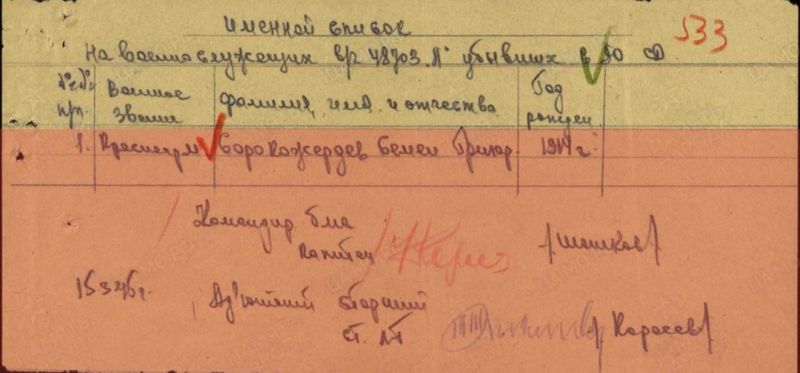 именной список
533
На военнослужащих в/ч 48703 "А" убывших в 90 СД
№№ п/п.
Военное звание
фамилия, имя и отчество
Год рожден
1. Красноарм Сорокожердев Семен Григор. 1914 г.
Командир б-на
Капитан
/Машков/
15 3 45 г.
Адъютант старший
Ст. Л-т
/Карасев/